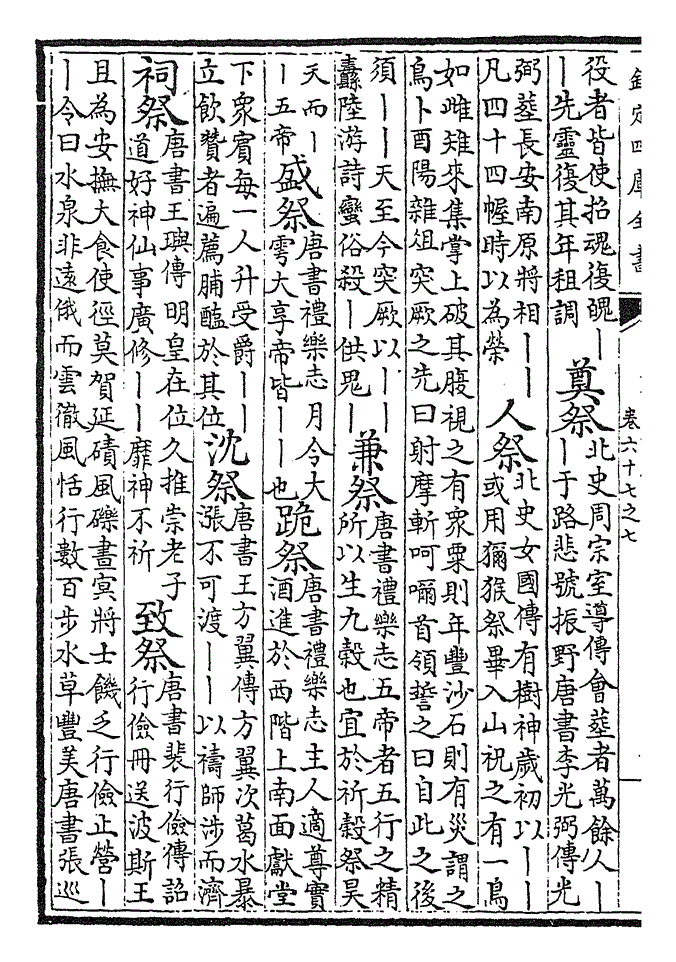 欽定四庫全書
卷六十七之七
役者皆使招魂復魄丨
丨先靈復其年租調
奠祭
北史周宗室導傳會葬者萬餘人丨
丨于路悲號振野唐書李光弼傳光
弼葬長安南原將相丨丨
凡四十四幄時以為榮
人祭
北史女國傳有樹神歲初以丨丨
或用獼猴祭畢入山祝之有一鳥
如雌雉來集掌上破其腹視之有衆粟則年豐沙石則有災謂之
鳥卜酉陽雜俎突厥之先曰射摩斬呵㖇首領誓之曰自此之後
須丨丨天至今突厥以丨丨
纛陸游詩蠻俗殺丨供鬼丨
兼祭
唐書禮樂志五帝者五行之精
所以生九穀也宜於祈穀祭昊
天而丨
丨五帝
盛祭
唐書禮樂志月令大
雩大享帝皆丨丨也
跪祭
唐書禮樂志主人適尊實
酒進於西階上南面獻堂
下衆賓每一人升受爵丨丨
立飲贊者遍薦脯醢於其位
沈祭
唐書王方翼傳方翼次葛水暴
漲不可渡丨丨以禱師涉而濟
祠祭
唐書王璵傳明皇在位久推崇老子
道好神仙事廣修丨丨靡神不祈
致祭
唐書裴行儉傳詔
行儉冊送波斯王
且為安撫大食使徑莫賀延磧風礫晝冥將士饑乏行儉止營丨
丨令曰水泉非遠俄而雲徹風恬行數百步水草豐美唐書張巡